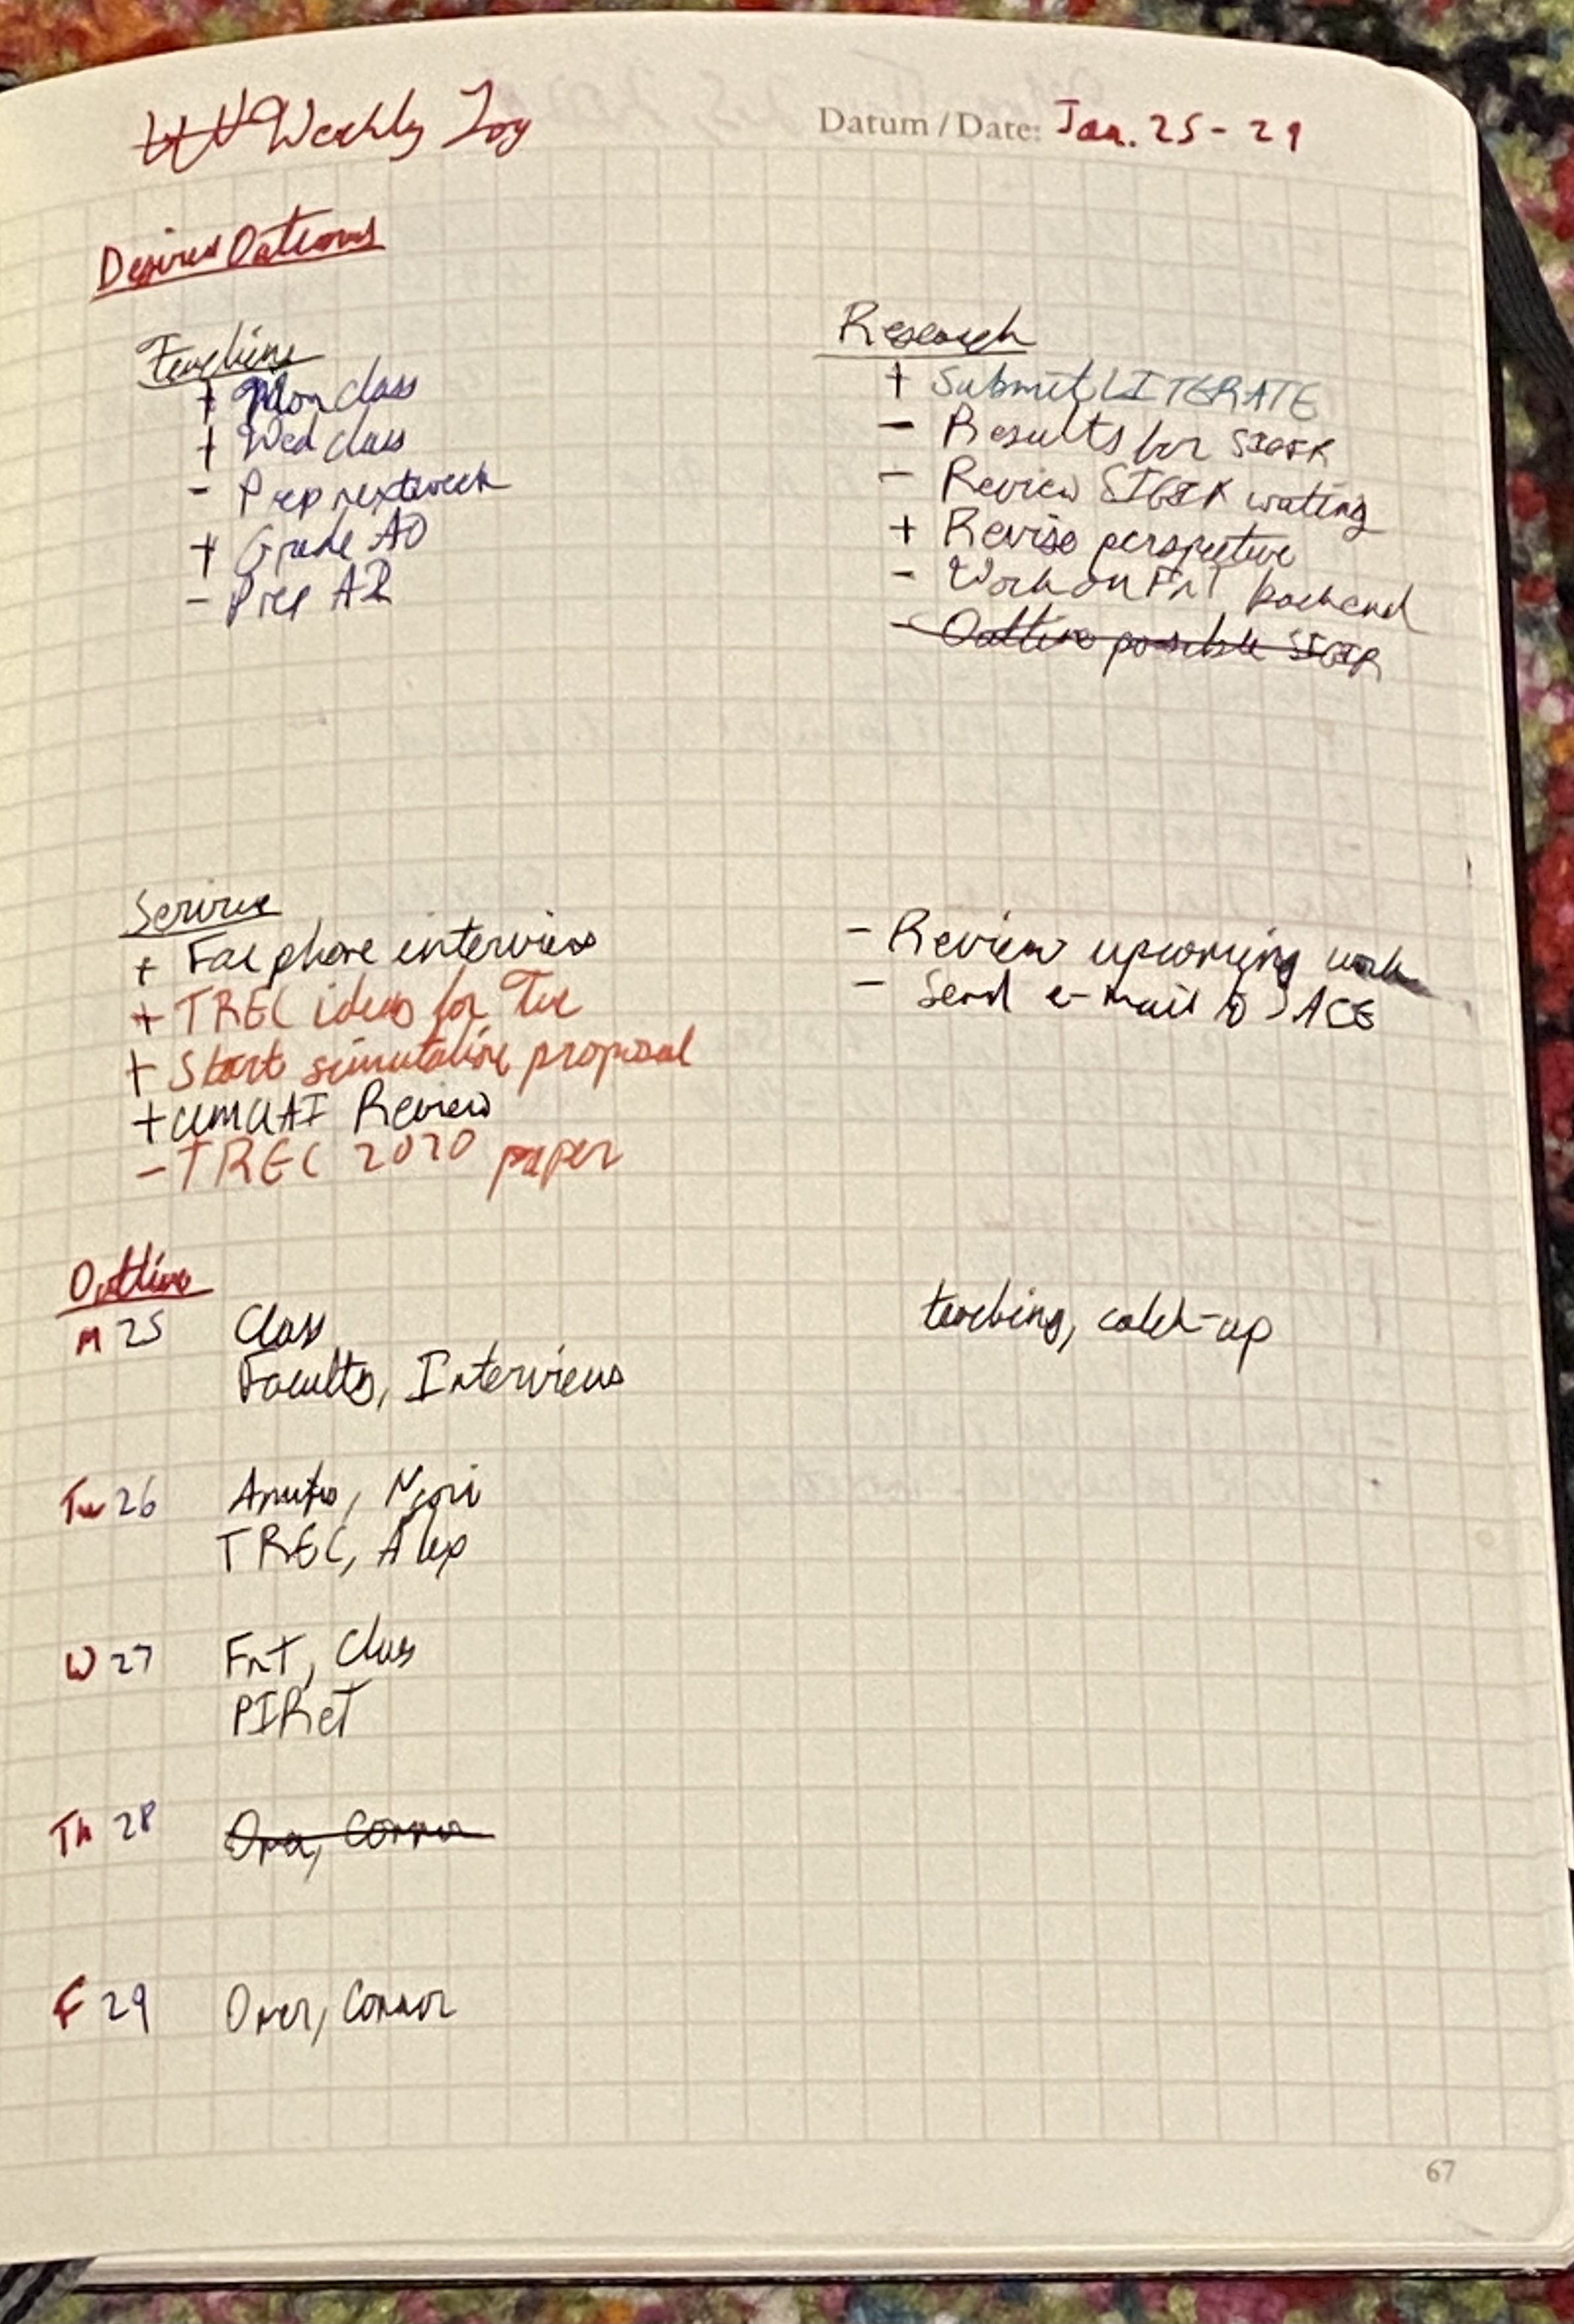 Weekly Log
Datum / Date: Jan. 25 - 29
Desired Outcomes
Teaching
+ Mon class
+ Wed class
- Prep next week
+ Grade A0
- Prep A2
Research
+ Submit LITERATE
- Results for SIGIR
- Review SIGIR writing
+ Revise perspective
- Work on FnT backend
- Outline possible SIGIR
Service
+ Fac phone interviews
+ TREC ideas for Tue
+ Start simulation proposal
+ UMUAI Review
- TREC 2020 paper
- Review upcoming work
- Send e-mail to
Outline
M 25 Class
teaching, catch-up
Faculty, Interviews
Tu 26
TREC, Alex
W 27 FnT, Class
PIReT
Th 28 Connor
F 29 Connor
67